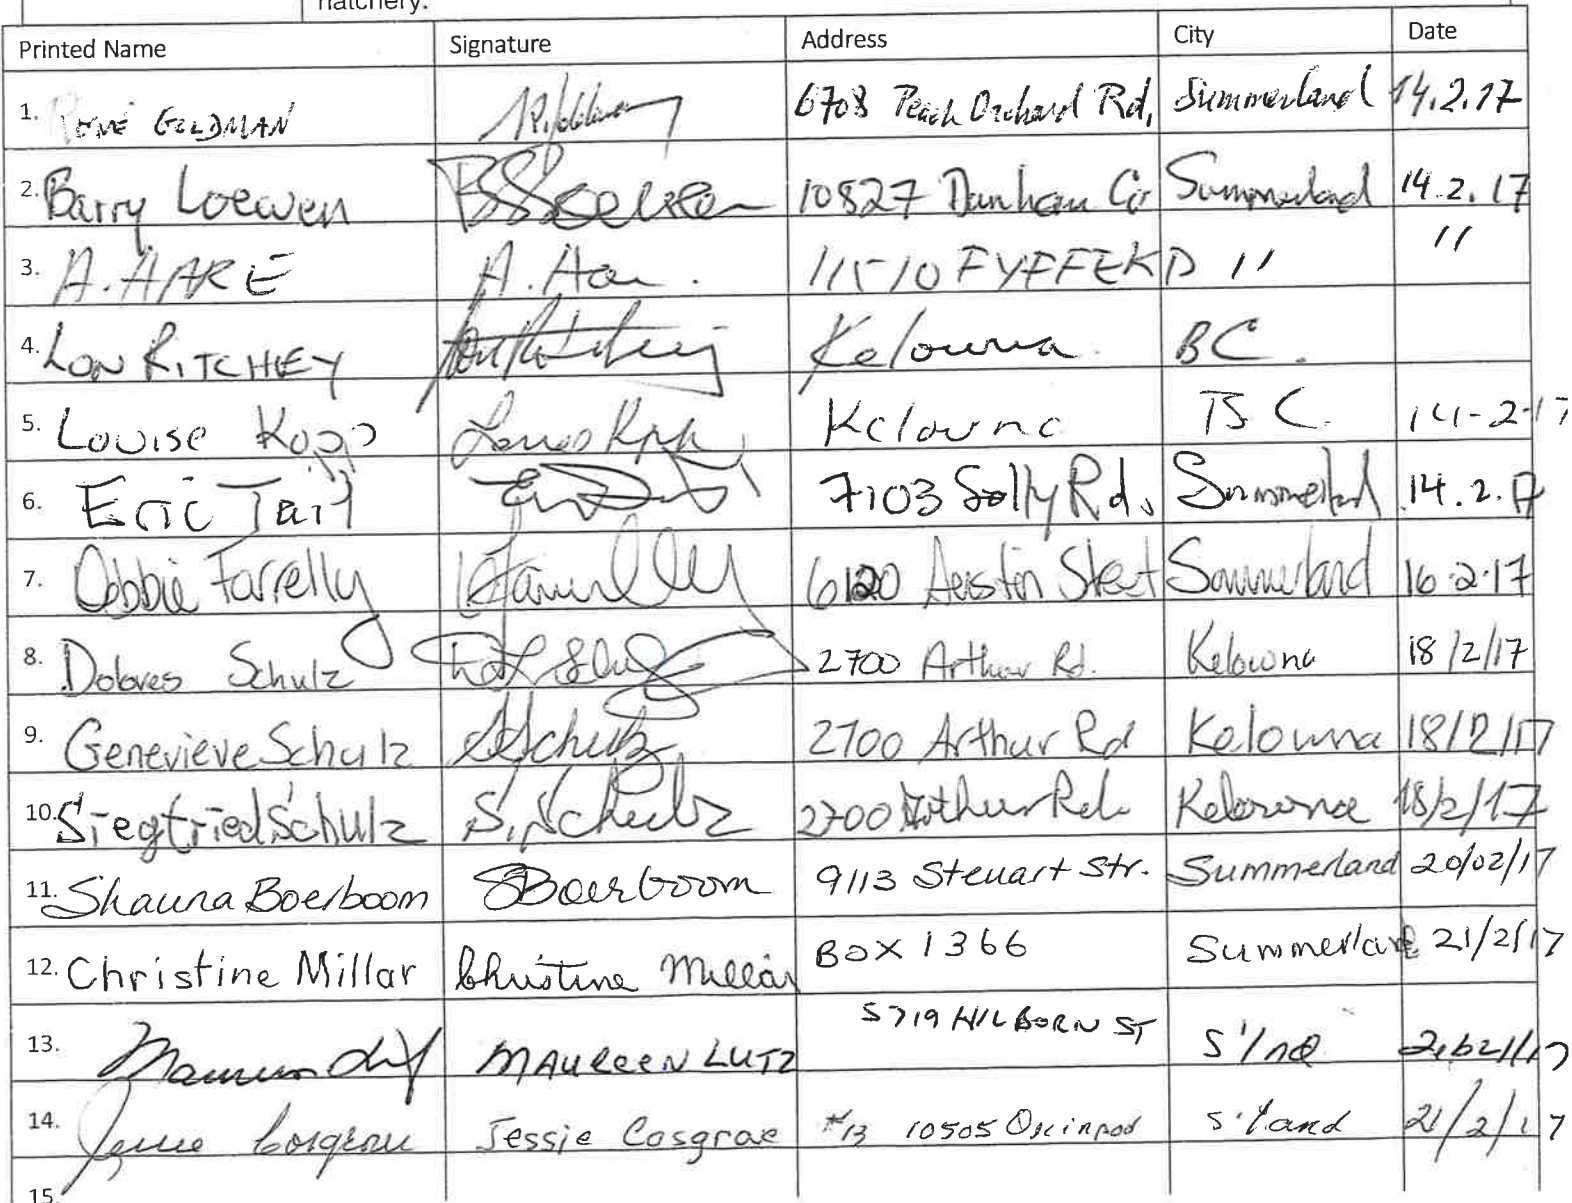 hatchery.
Printed Name Signature Address City Date
1. RENÉ GOLDMAN 6708 Peach Orchard Rd, Summerland 14.2.17
2. Barry Loewen 10827 Dunham Cr Summerland 14.2.17
3. A. HARE A. Hare 11510 FYFFE RD " "
4. LON RITCHEY Kelowna BC.
5. Louise Kopp Kelowna B C 14-2-17
6. Eric Tait 7103 Solly Rd. Summerland 14.2.17
7. Debbie Farrelly 6120 Austin Street Summerland 16.2.17
8. Dolores Schulz 2700 Arthur Rd. Kelowna 18/2/17
9. Genevieve Schulz GSchulz 2700 Arthur Rd Kelowna 18/2/17
10. Siegfried Schulz S. Schulz 2700 Arthur Rd. Kelowna 18/2/17
11. Shauna Boerboom SBoerboom 9113 Steuart Str. Summerland 20/02/17
12. Christine Millar Christine Millar BOX 1366 Summerland 21/2/17
13. MAUREEN LUTZ 5719 HILBORN ST S'lnd
14. Jessie Cosgrave #13 10505 S'land 21/2/17
15.